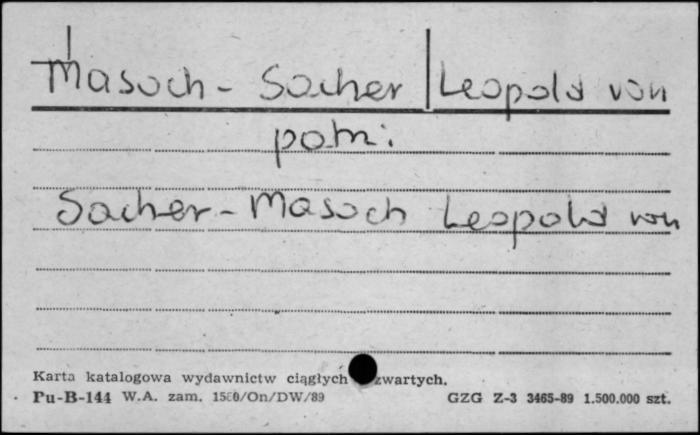 Masoch - Sacher Leopold von
patrz:
Sacher - Masoch Leopold von
Karta katalogowa wydawnictw ciągłych zwartych.
Pu-B-144 W.A. zam. /On/DW/89 GZG Z-3 3465-89 1.500.000 szt.